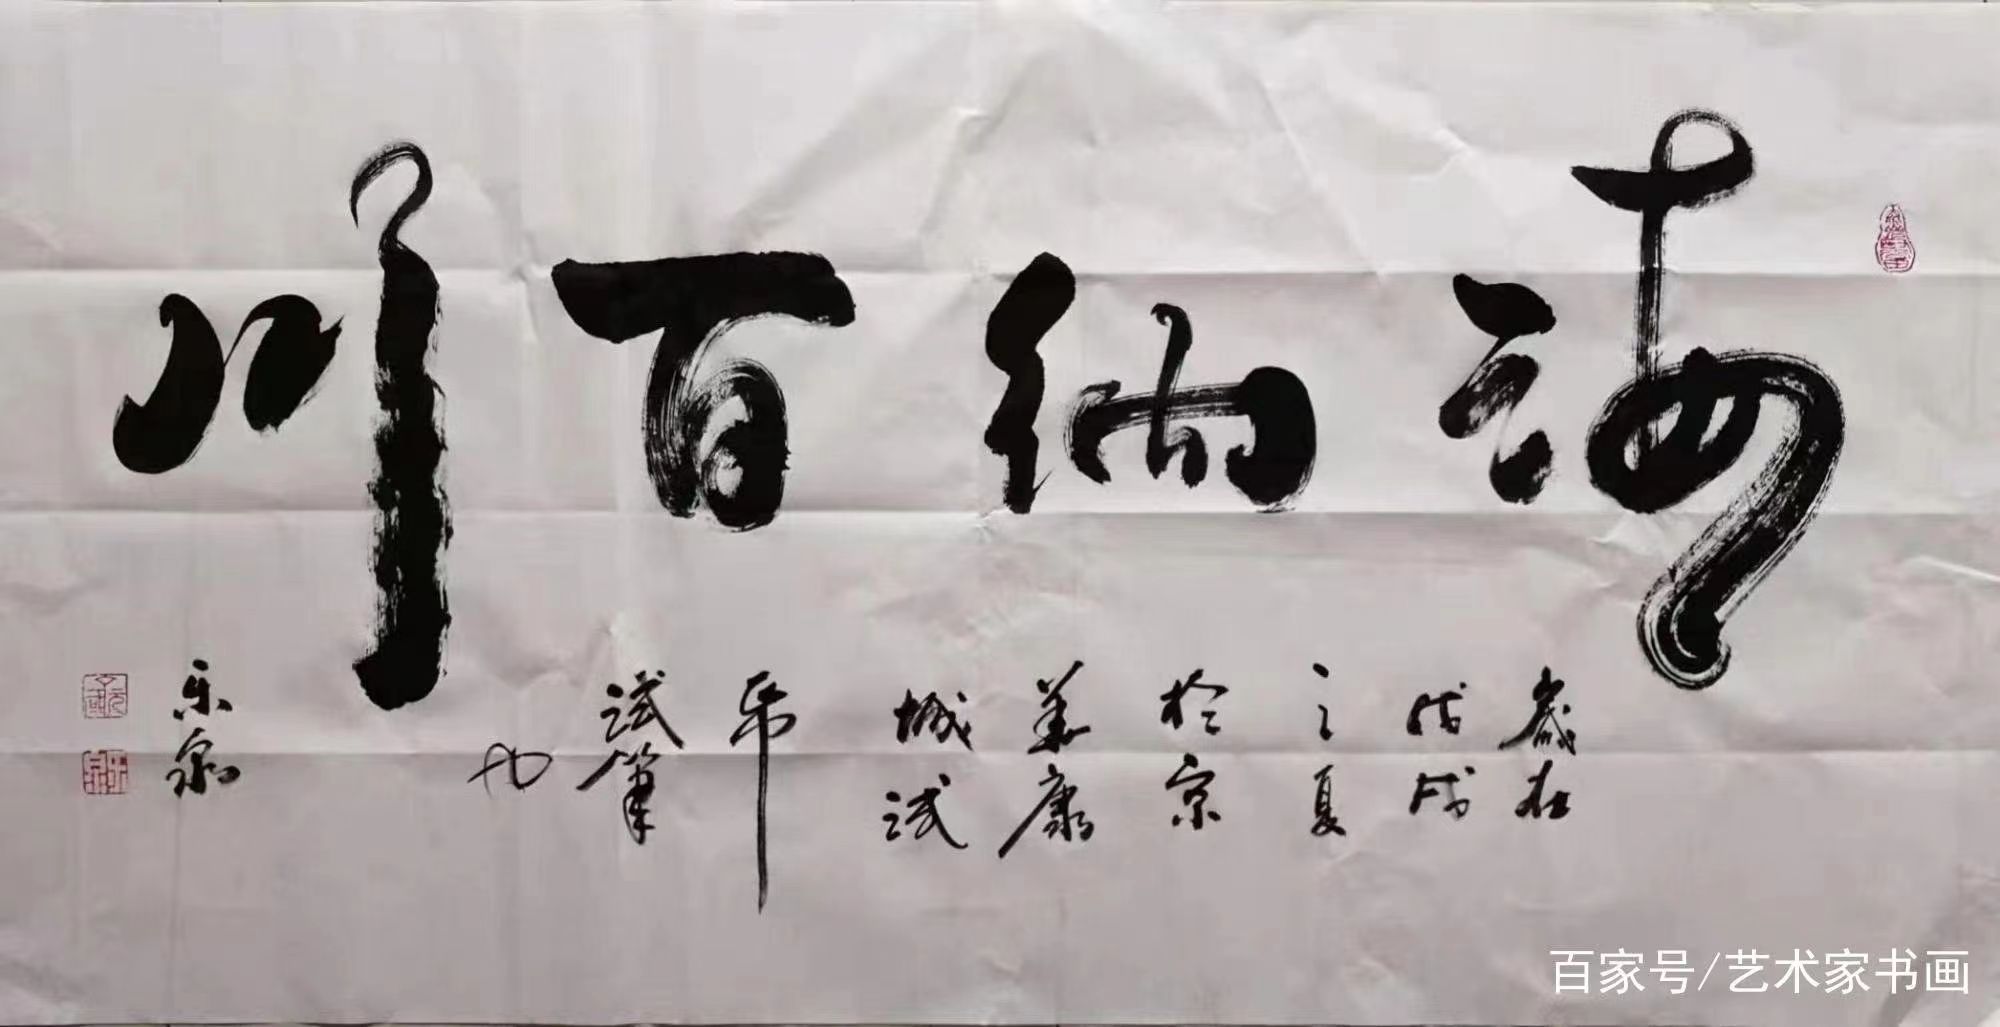 海纳百川
岁在
戊戌
之夏
於京
美康
城试
帋
试笔
也
乐泉
百家号/艺术家书画